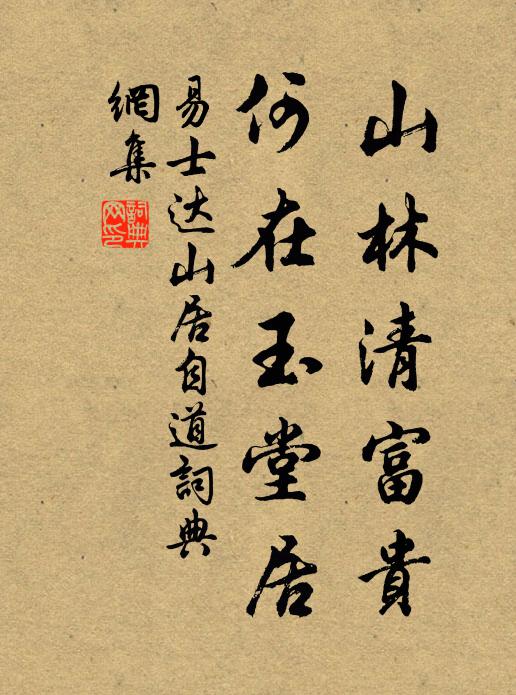 山林清富貴
何在玉堂居
易士达山居自道詞典
網集
詞典
网印